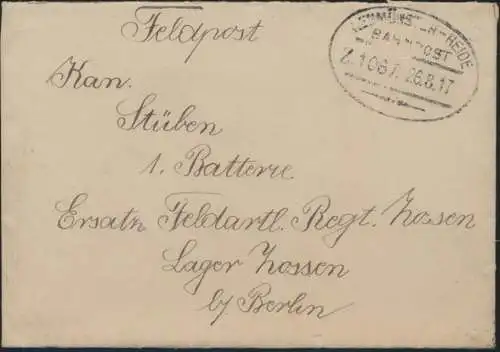 Feldpost
NEUMÜNSTER-HEIDE
BAHNPOST
Z.1067. 26.8.17
Kan.
Stüben
1. Batterie
Ersatz Feldartl. Regt. Zossen
Lager Zossen
b/ Berlin